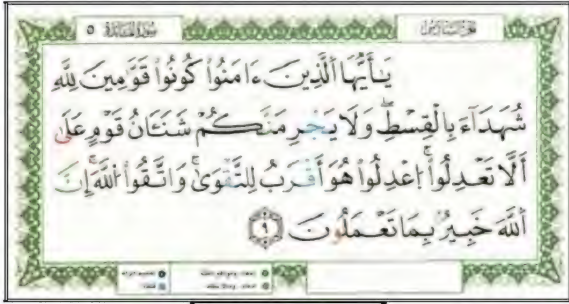 سورة المائدة ٥
الجزء السادس
يَـٰٓأَيُّهَا ٱلَّذِينَ ءَامَنُوا۟ كُونُوا۟ قَوَّٰمِينَ لِلَّهِ
شُهَدَآءَ بِٱلْقِسْطِ ۖ وَلَا يَجْرِمَنَّكُمْ شَنَـَٔانُ قَوْمٍ عَلَىٰٓ
أَلَّا تَعْدِلُوا۟ ۚ ٱعْدِلُوا۟ هُوَ أَقْرَبُ لِلتَّقْوَىٰ ۖ وَٱتَّقُوا۟ ٱللَّهَ ۚ إِنَّ
ٱللَّهَ خَبِيرٌۢ بِمَا تَعْمَلُونَ ٩